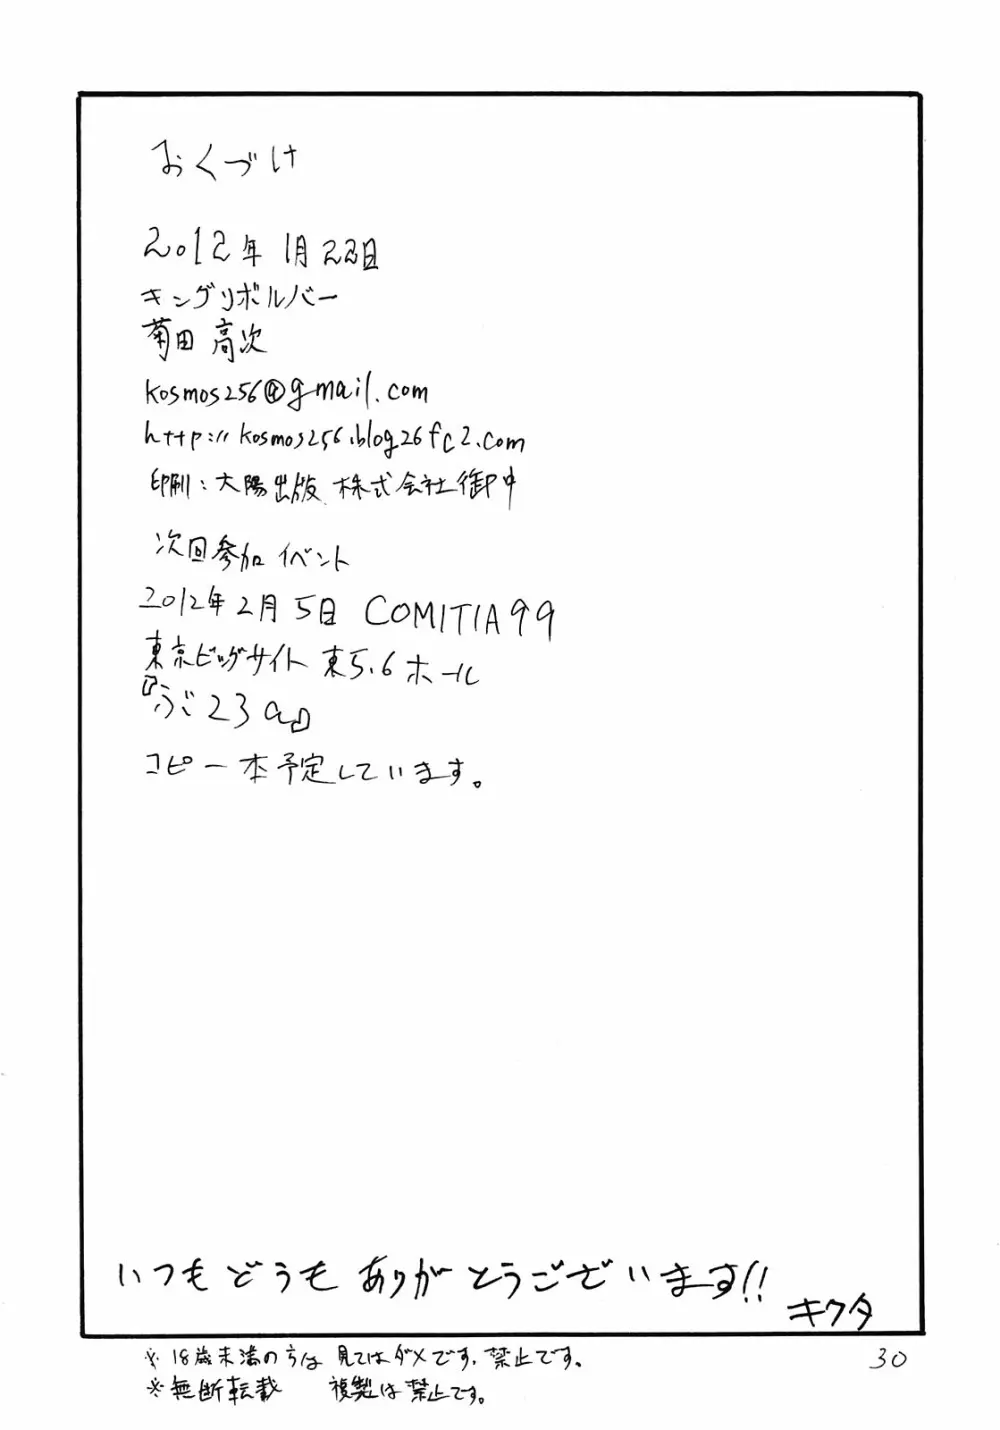 おくづけ
2012年1月22日
キングリボルバー
菊田 高次
kosmos256@gmail.com
http://kosmos256.blog26fc2.com
印刷：大陽出版 株式会社御中
次回参加イベント
2012年2月5日 COMITIA99
東京ビッグサイト 東5.6ホール
『ふ23a』
コピー本予定しています。
いつもどうもありがとうございます!!
キクタ
※18歳未満の方は見てはダメです。禁止です。
※無断転載 複製は禁止です。
30